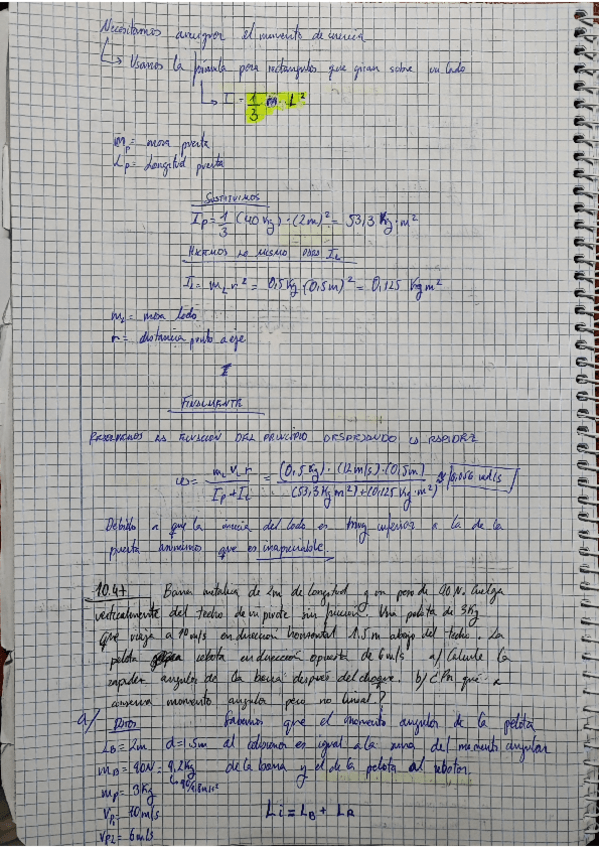 Necesitamos averiguar el momento de inercia
↳ Usamos la fórmula para rectángulos que giran sobre un lado
↳ I = 1/3 · m · L²
mp = masa puerta
Lp = Longitud puerta
SUSTITUIMOS
Ip = 1/3 (40 Kg) · (2m)² = 53,3 Kg · m²
HACEMOS LO MISMO PARA IL
IL = mL r² = 0,5 Kg · (0,5m)² = 0,125 Kg m²
mL = masa lodo
r = distancia punto a eje
I
FINALMENTE
LA ECUACIÓN DEL PRINCIPIO DESPEJANDO LA RAPIDEZ
ω = mL vL r / Ip + IL = (0,5 Kg) · (12 m/s) · (0,5m) / (53,3 Kg m²) + (0,125 Kg · m²) ≅ 0,056 rad/s
Debido a que la inercia del lodo es muy inferior a la de la
puerta asumimos que es inapreciable.
10.47 Barra metálica de 2m de longitud y un peso de 90 N. Cuelga
verticalmente del techo de un pivote sin fricción. Una pelota de 3Kg
que viaja a 10 m/s en dirección horizontal 1.5 m abajo del techo. La
pelota rebota en dirección opuesta de 6 m/s a) Calcule la
rapidez angular de la barra después del choque. b) ¿Por qué se
conserva momento angular pero no lineal?
a) Datos Sabemos que el momento angular de la pelota
LB = 2m d = 1.5m al colisionar es igual a la suma del momento angular
mB = 90N = 9,2Kg de la barra y el de la pelota al rebotar.
↳ 90/9,8 m/s²
mp = 3Kg
vp1 = 10 m/s Li = LB + LR
vp2 = 6 m/s